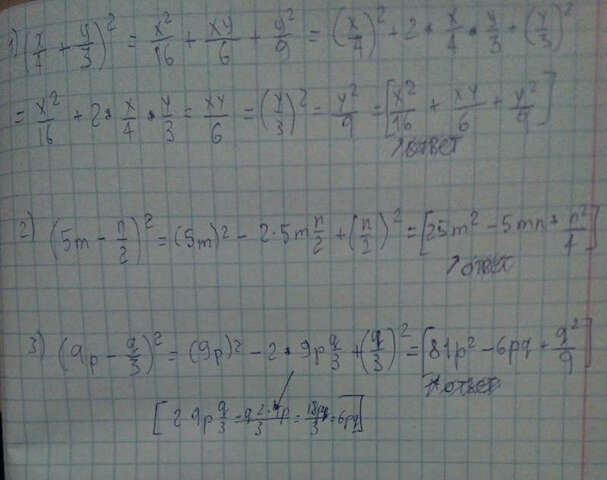 1) (x/4 + y/3)² = x²/16 + xy/6 + y²/9 = (x/4)² + 2 · x/4 · y/3 + (y/3)²
= x²/16 + 2 · x/4 · y/3 = xy/6 = (y/3)² = y²/9 = [x²/16 + xy/6 + y²/9]
ответ
2) (5m - n/2)² = (5m)² - 2·5m n/2 + (n/2)² = [25m² - 5mn + n²/4]
ответ
3) (9p - q/3)² = (9p)² - 2 · 9p q/3 + (q/3)² = [81p² - 6pq + q²/9]
ответ
[2 9p q/3 = = 18pq/3 = 6pq]